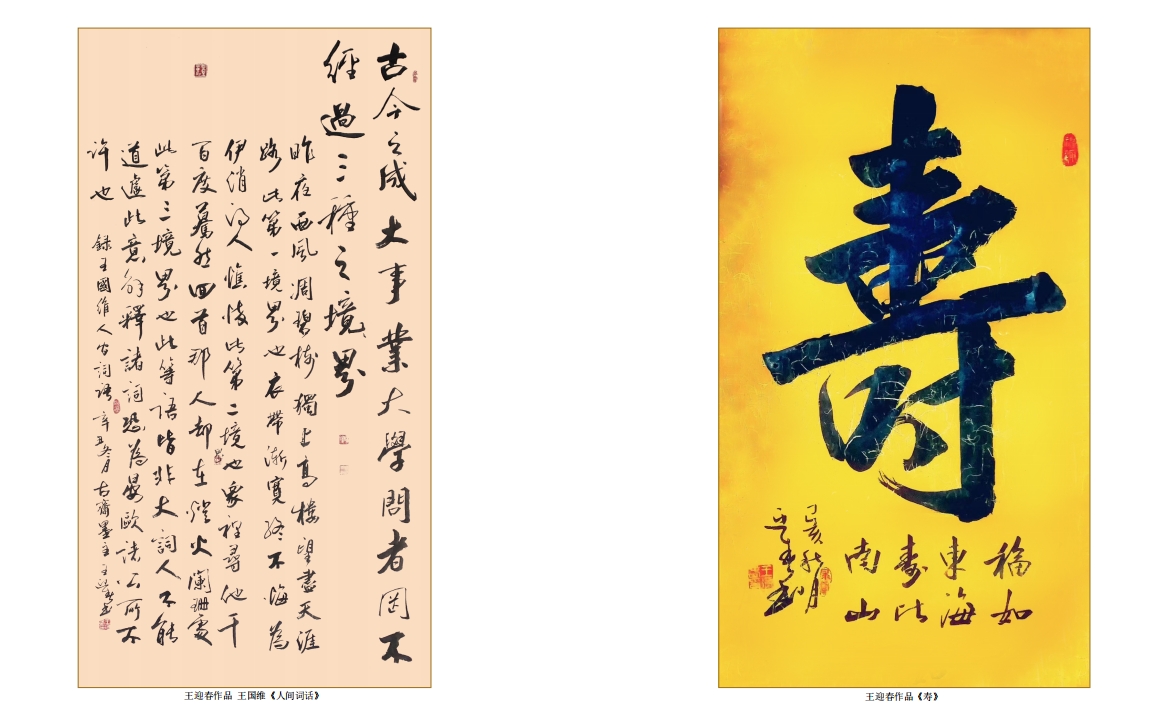 古今之成大事業大學問者罔不
經過三種之境界
昨夜西風凋碧樹獨上高樓望盡天涯
路此第一境界也衣帶漸寬終不悔為
伊消得人憔悴此第二境也衆裡尋他千
百度驀然回首那人却在燈火闌珊處
此第三境界也此等語皆非大詞人不能
道遽此意解釋諸詞恐為晏歐諸公所不
許也
録王國維人間詞語 辛丑冬月 古齋墨主王迎春書
王迎春作品 王国维《人间词话》
壽
福如
東海
壽比
南山
己亥秋月
王迎春書
王迎春作品《寿》